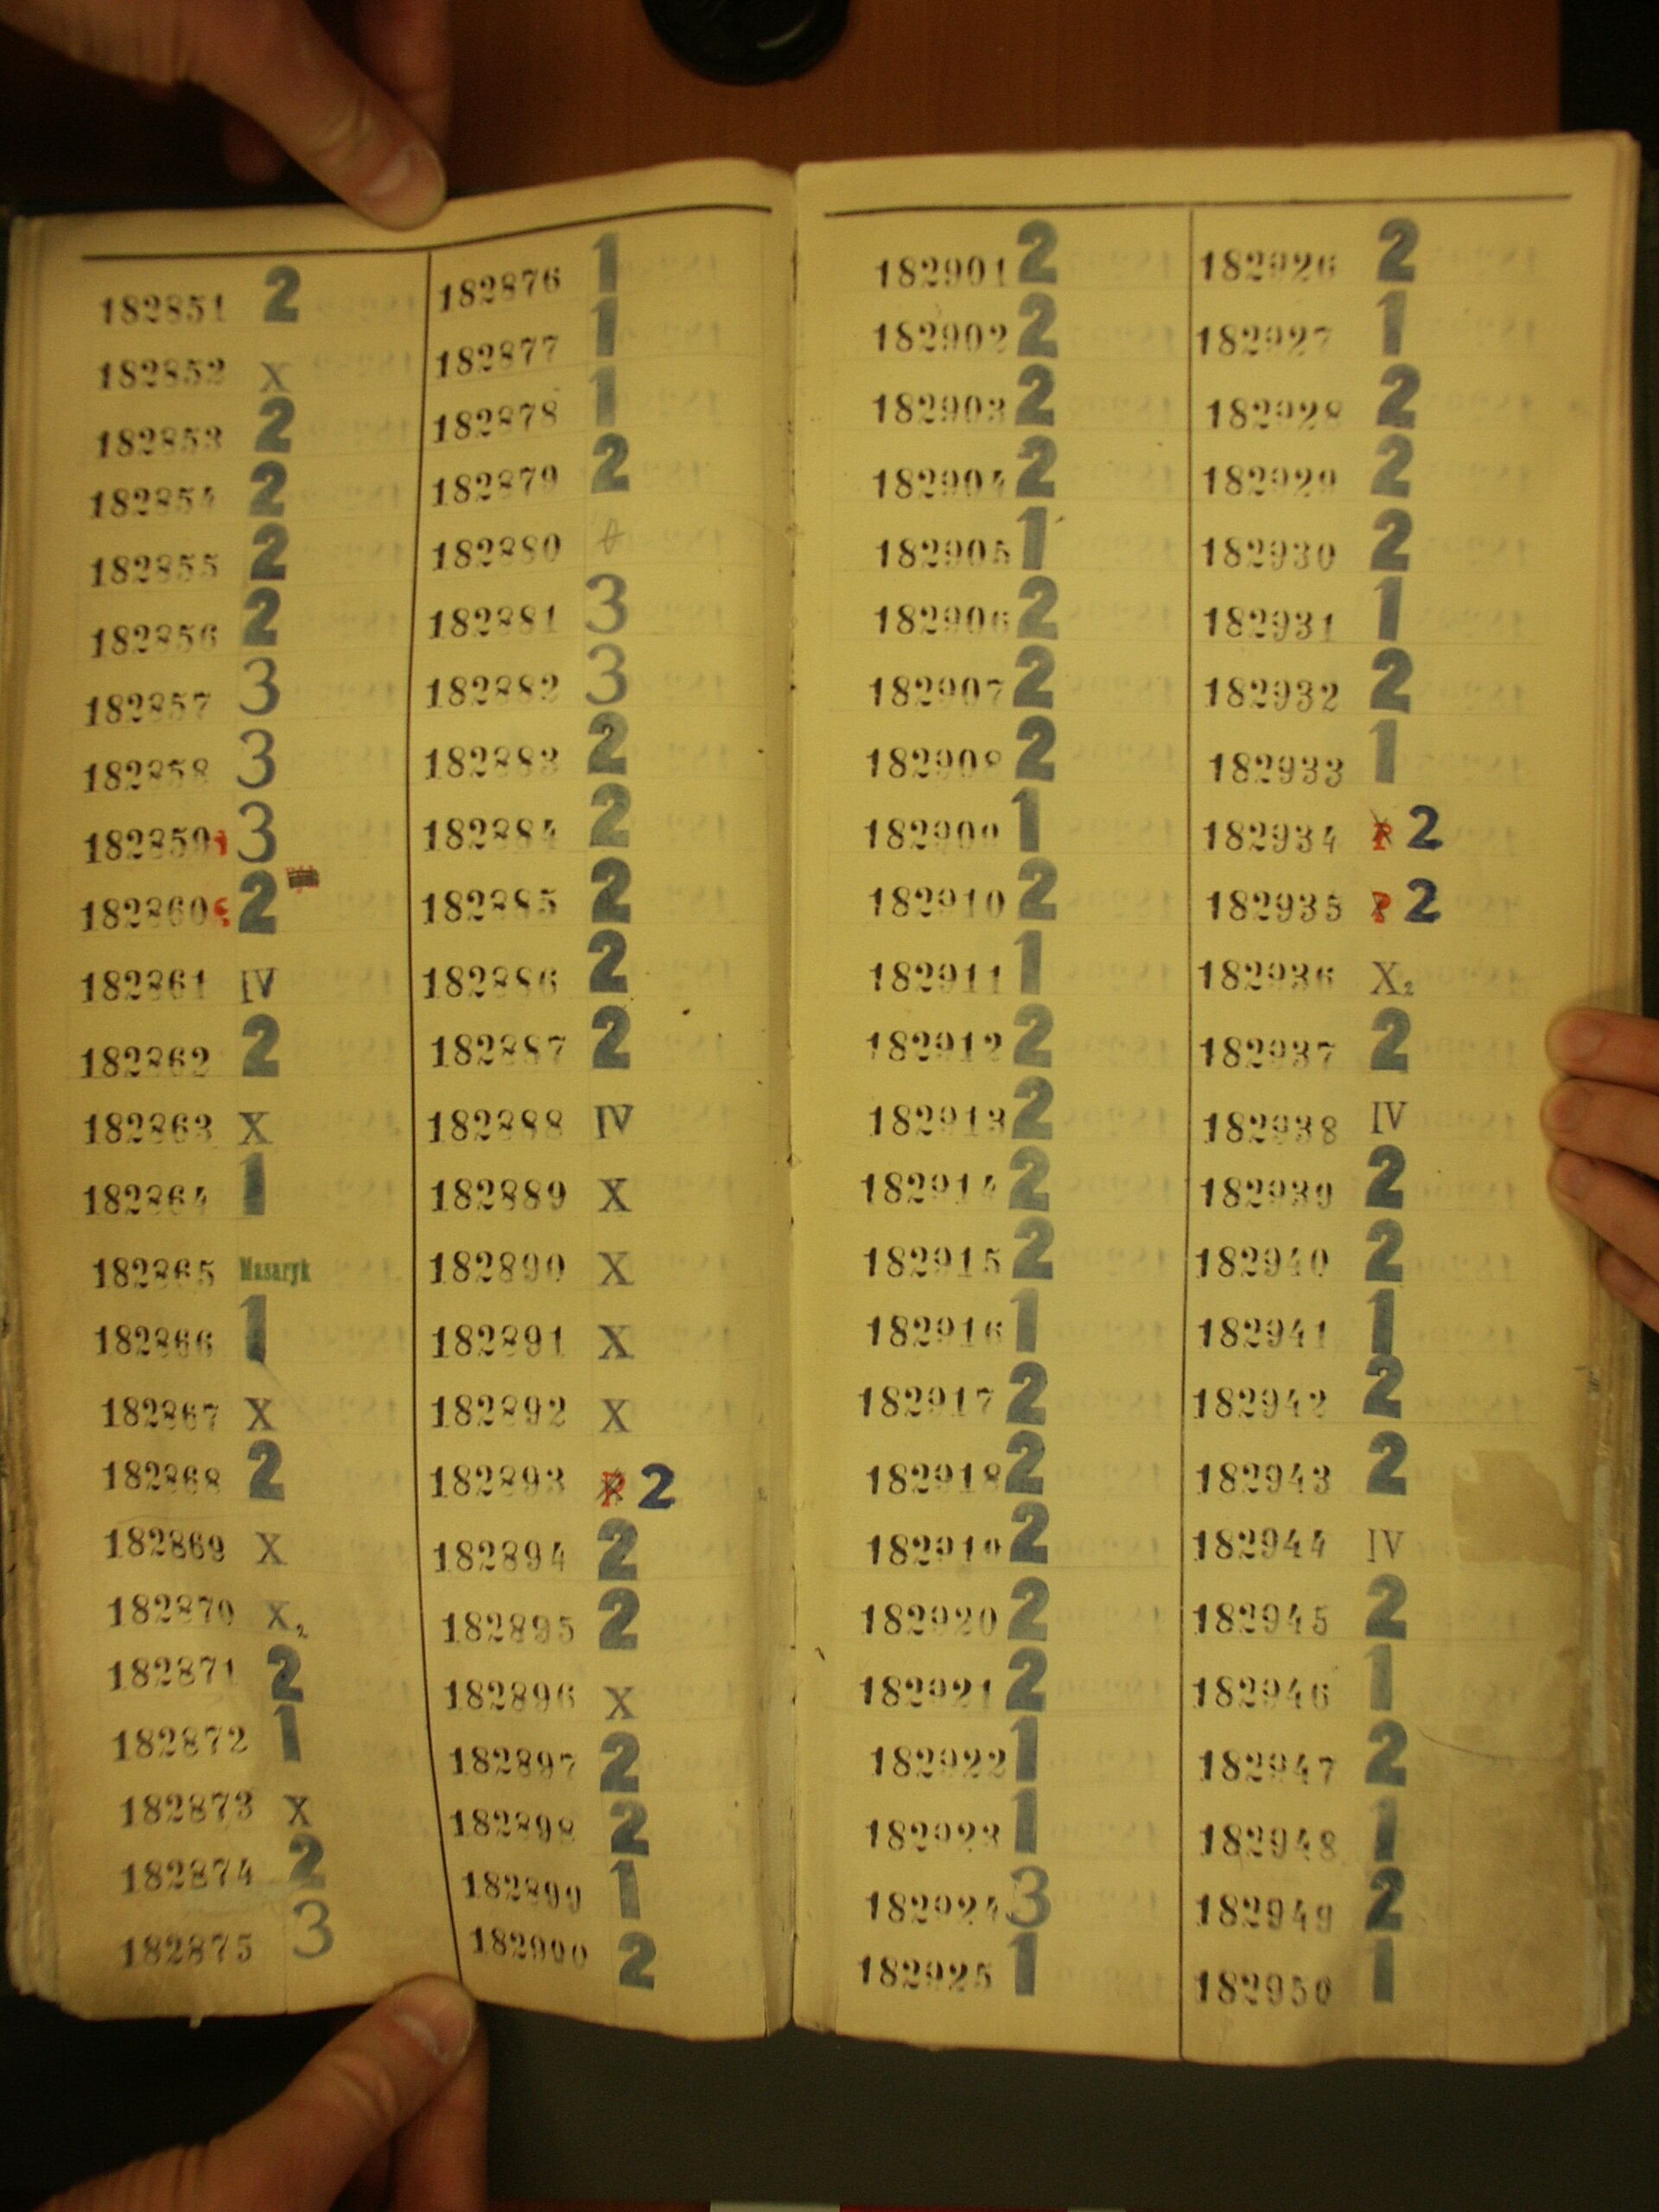 182851 2
182852 X
182853 2
182854 2
182855 2
182856 2
182857 3
182858 3
182859 3
182860 2
182861 IV
182862 2
182863 X
182864 1
182865 Masaryk
182866 1
182867 X
182868 2
182869 X
182870 X2
182871 2
182872 1
182873 X
182874 2
182875 3
182876 1
182877 1
182878 1
182879 2
182880
182881 3
182882 3
182883 2
182884 2
182885 2
182886 2
182887 2
182888 IV
182889 X
182890 X
182891 X
182892 X
182893 P 2
182894 2
182895 2
182896 X
182897 2
182898 2
182899 1
182900 2
182901 2
182902 2
182903 2
182904 2
182905 1
182906 2
182907 2
182908 2
182909 1
182910 2
182911 1
182912 2
182913 2
182914 2
182915 2
182916 1
182917 2
182918 2
182919 2
182920 2
182921 2
182922 1
182923 1
182924 3
182925 1
182926 2
182927 1
182928 2
182929 2
182930 2
182931 1
182932 2
182933 1
182934 P 2
182935 P 2
182936 X2
182937 2
182938 IV
182939 2
182940 2
182941 1
182942 2
182943 2
182944 IV
182945 2
182946 1
182947 2
182948 1
182949 2
182950 1